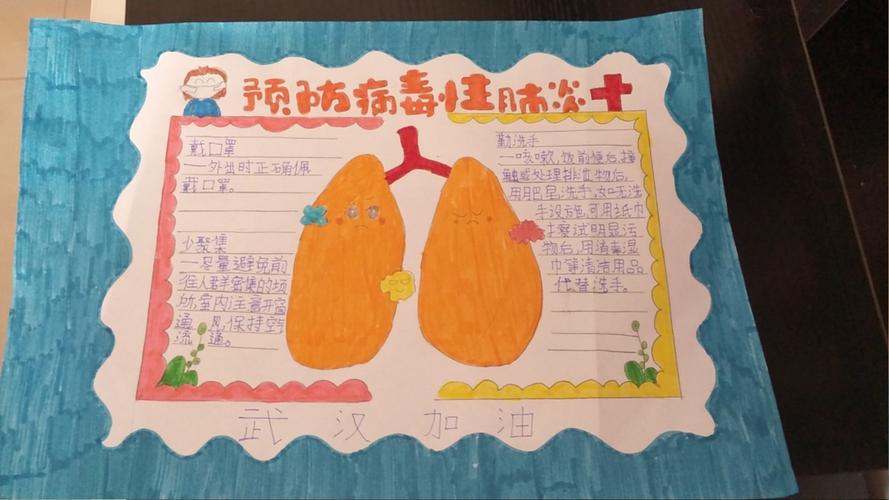 预防病毒性肺炎
戴口罩
一外出时正确佩
戴口罩。
少聚集
一尽量避免前
往人群密集的场
所,室内注意开窗
通风,保持空气
流通。
勤洗手
一咳嗽,饭前便后,接
触或处理排泄物后,
用肥皂洗手,如无洗
手设施,可用纸巾
擦试明显污
物后,用消毒湿
巾等清洁用品
代替洗手。
武汉加油